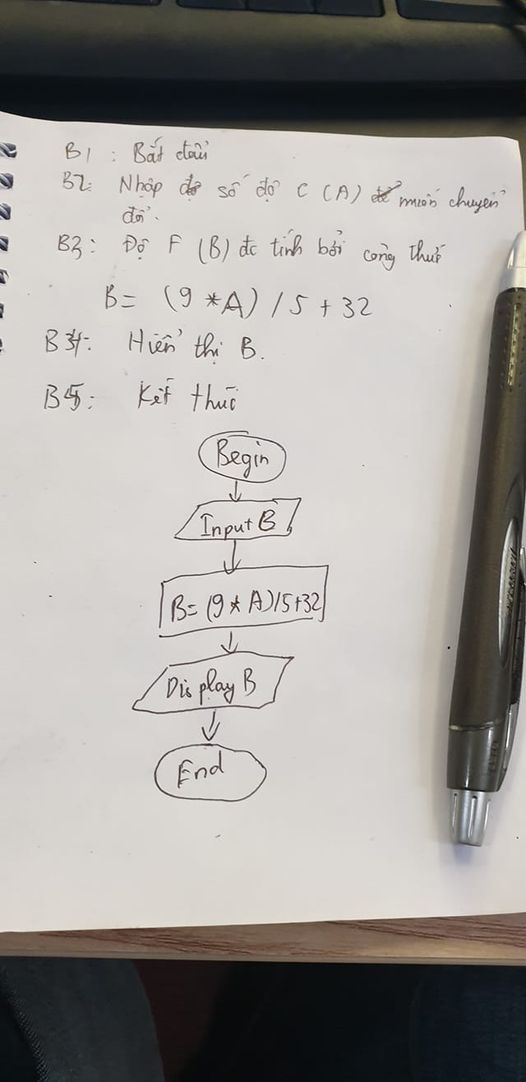 B1 : Bắt đầu
B2: Nhập số độ C (A) muốn chuyển
đổi.
B3: Độ F (B) đc tính bởi công thức
B= (9 *A) / 5 + 32
B4: Hiển thị B.
B5: Kết thúc
Begin
Input B
B= (9 * A)/5+32
Display B
End